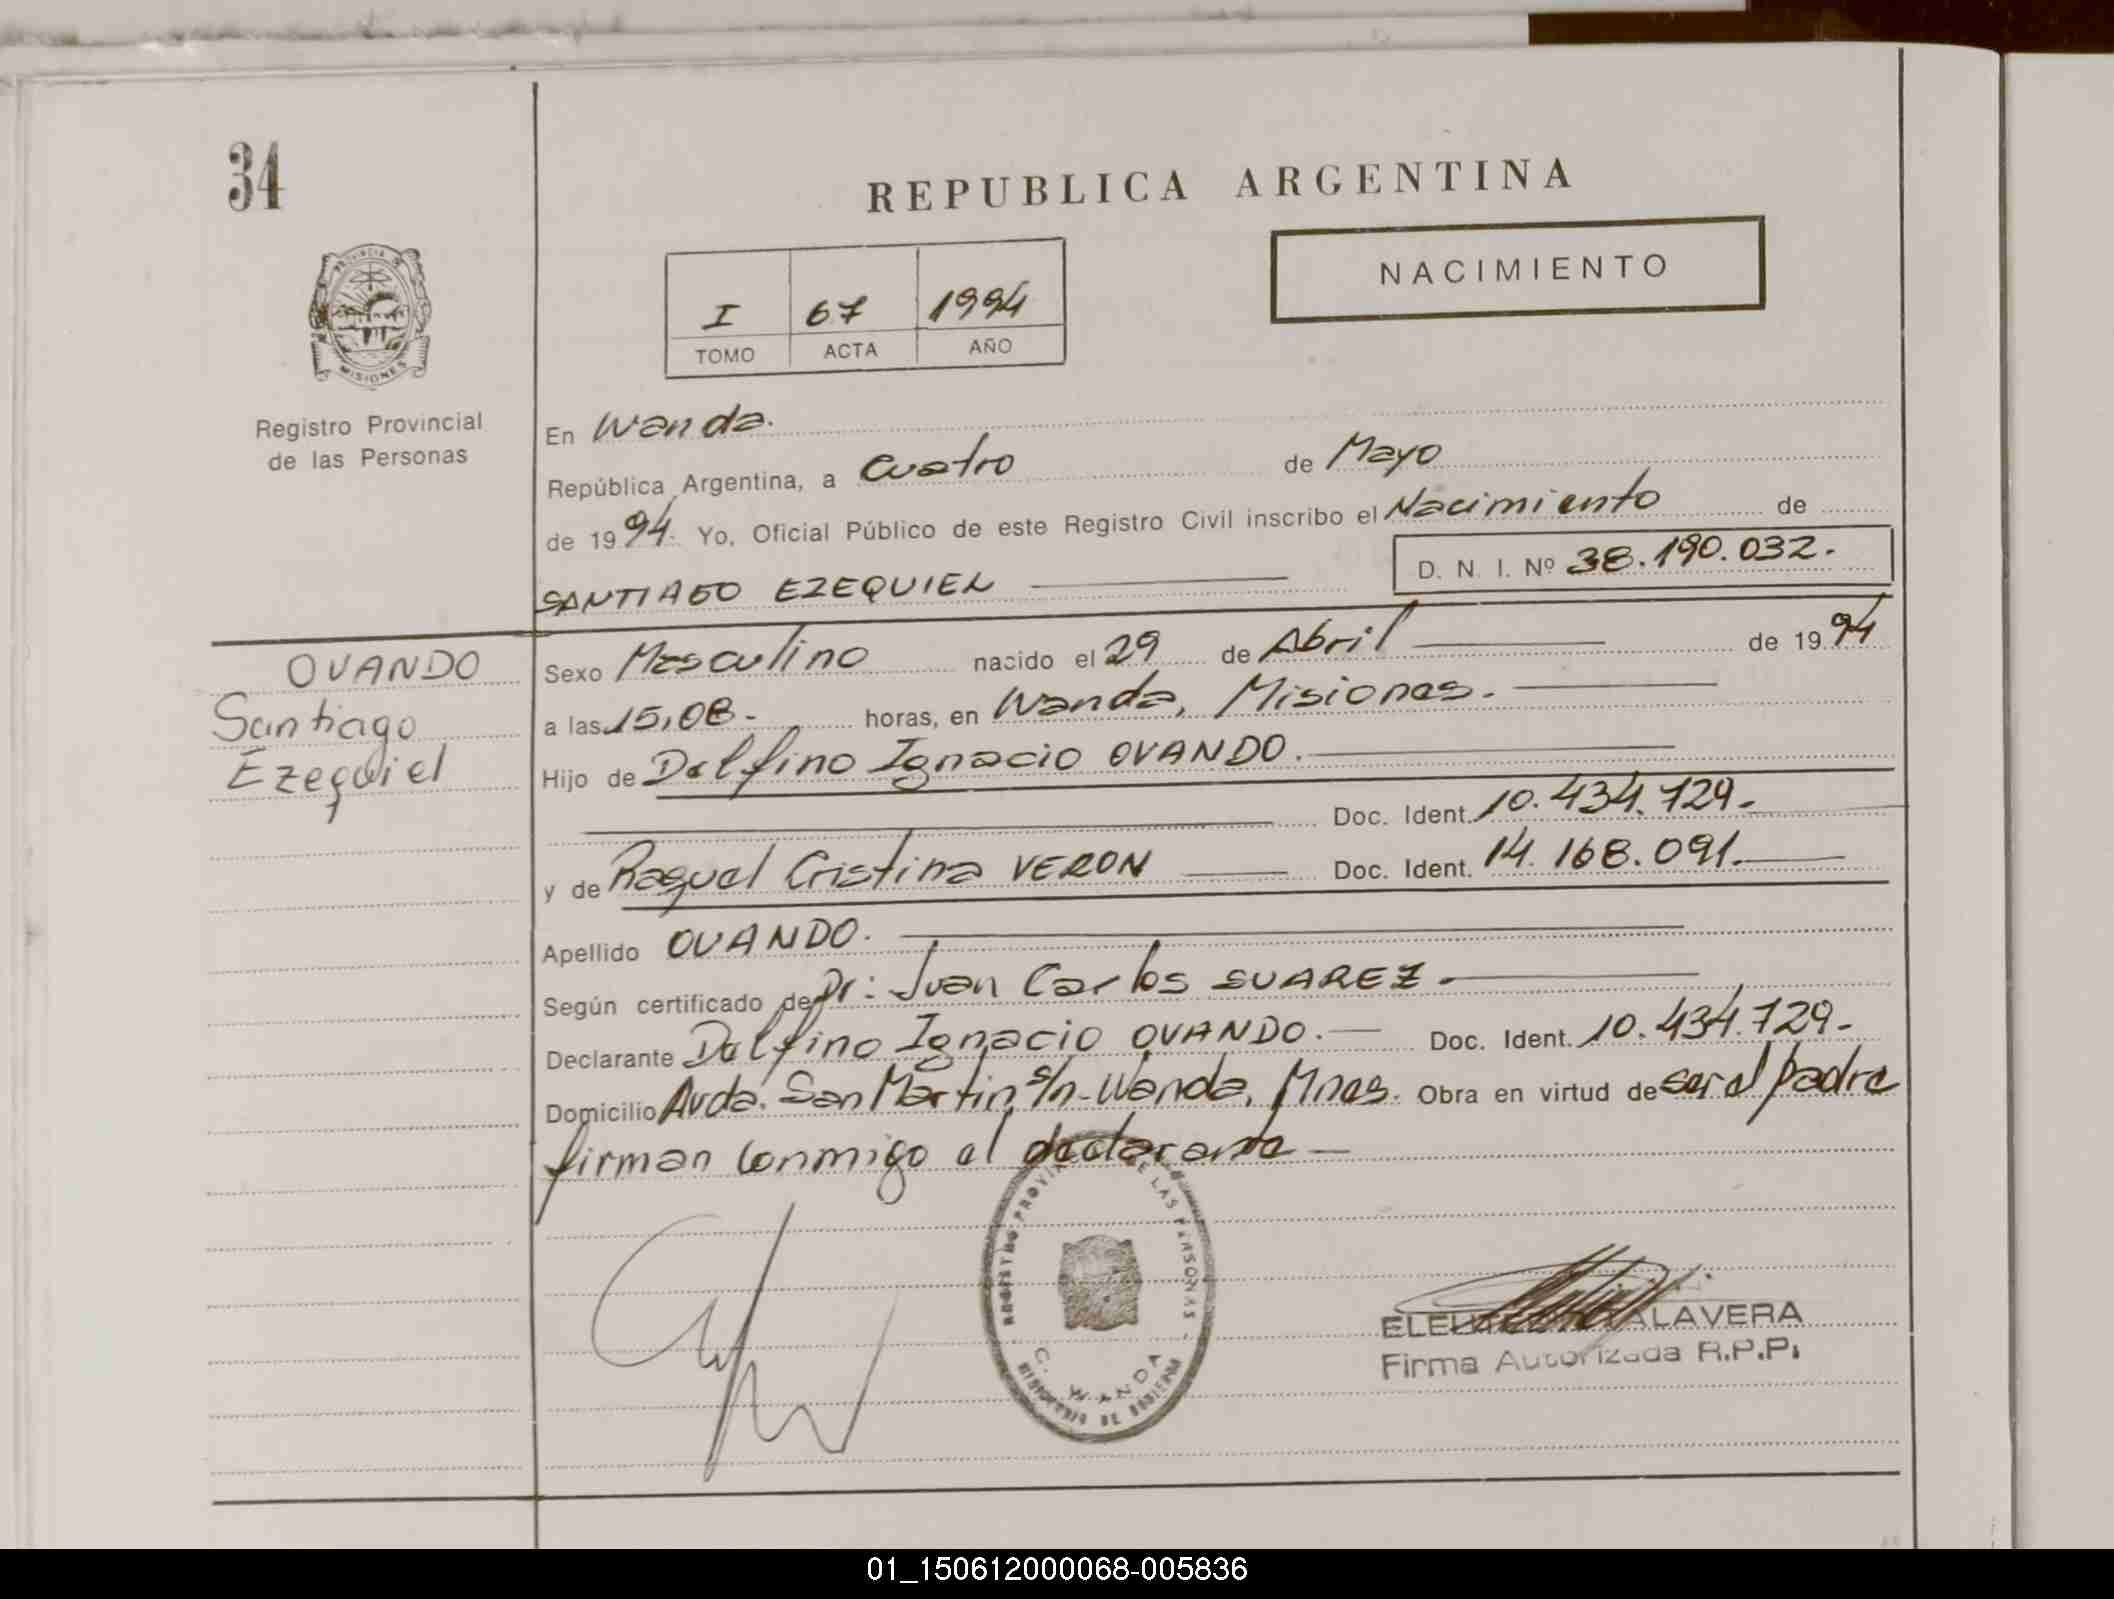 34
REPUBLICA ARGENTINA
NACIMIENTO
I 67 1994
TOMO ACTA AÑO
PROVINCIA DE
MISIONES
Registro Provincial
de las Personas
En Wanda.
República Argentina, a Cuatro de Mayo
de 1994. Yo, Oficial Público de este Registro Civil inscribo el Nacimiento de
D. N. I. Nº 38.190.032.
SANTIAGO EZEQUIEL
OVANDO
Santiago
Ezequiel
Sexo Masculino nacido el 29 de Abril de 1994
a las 15,08. horas, en Wanda, Misiones.
Hijo de Delfino Ignacio OVANDO.
Doc. Ident. 10.434.729.
y de Raquel Cristina VERON Doc. Ident. 14.168.091.
Apellido OVANDO.
Según certificado de Dr: Juan Carlos SUAREZ.
Declarante Delfino Ignacio OVANDO. Doc. Ident. 10.434.729.
Domicilio Avda. San Martin s/n-Wanda, Mnes. Obra en virtud de ser el padre
firman conmigo el declarante
REGISTRO PROVINCIAL DE LAS PERSONAS
C. WANDA
MINISTERIO DE GOBIERNO
ALAVERA
Firma Autorizada R.P.P.
01_150612000068-005836